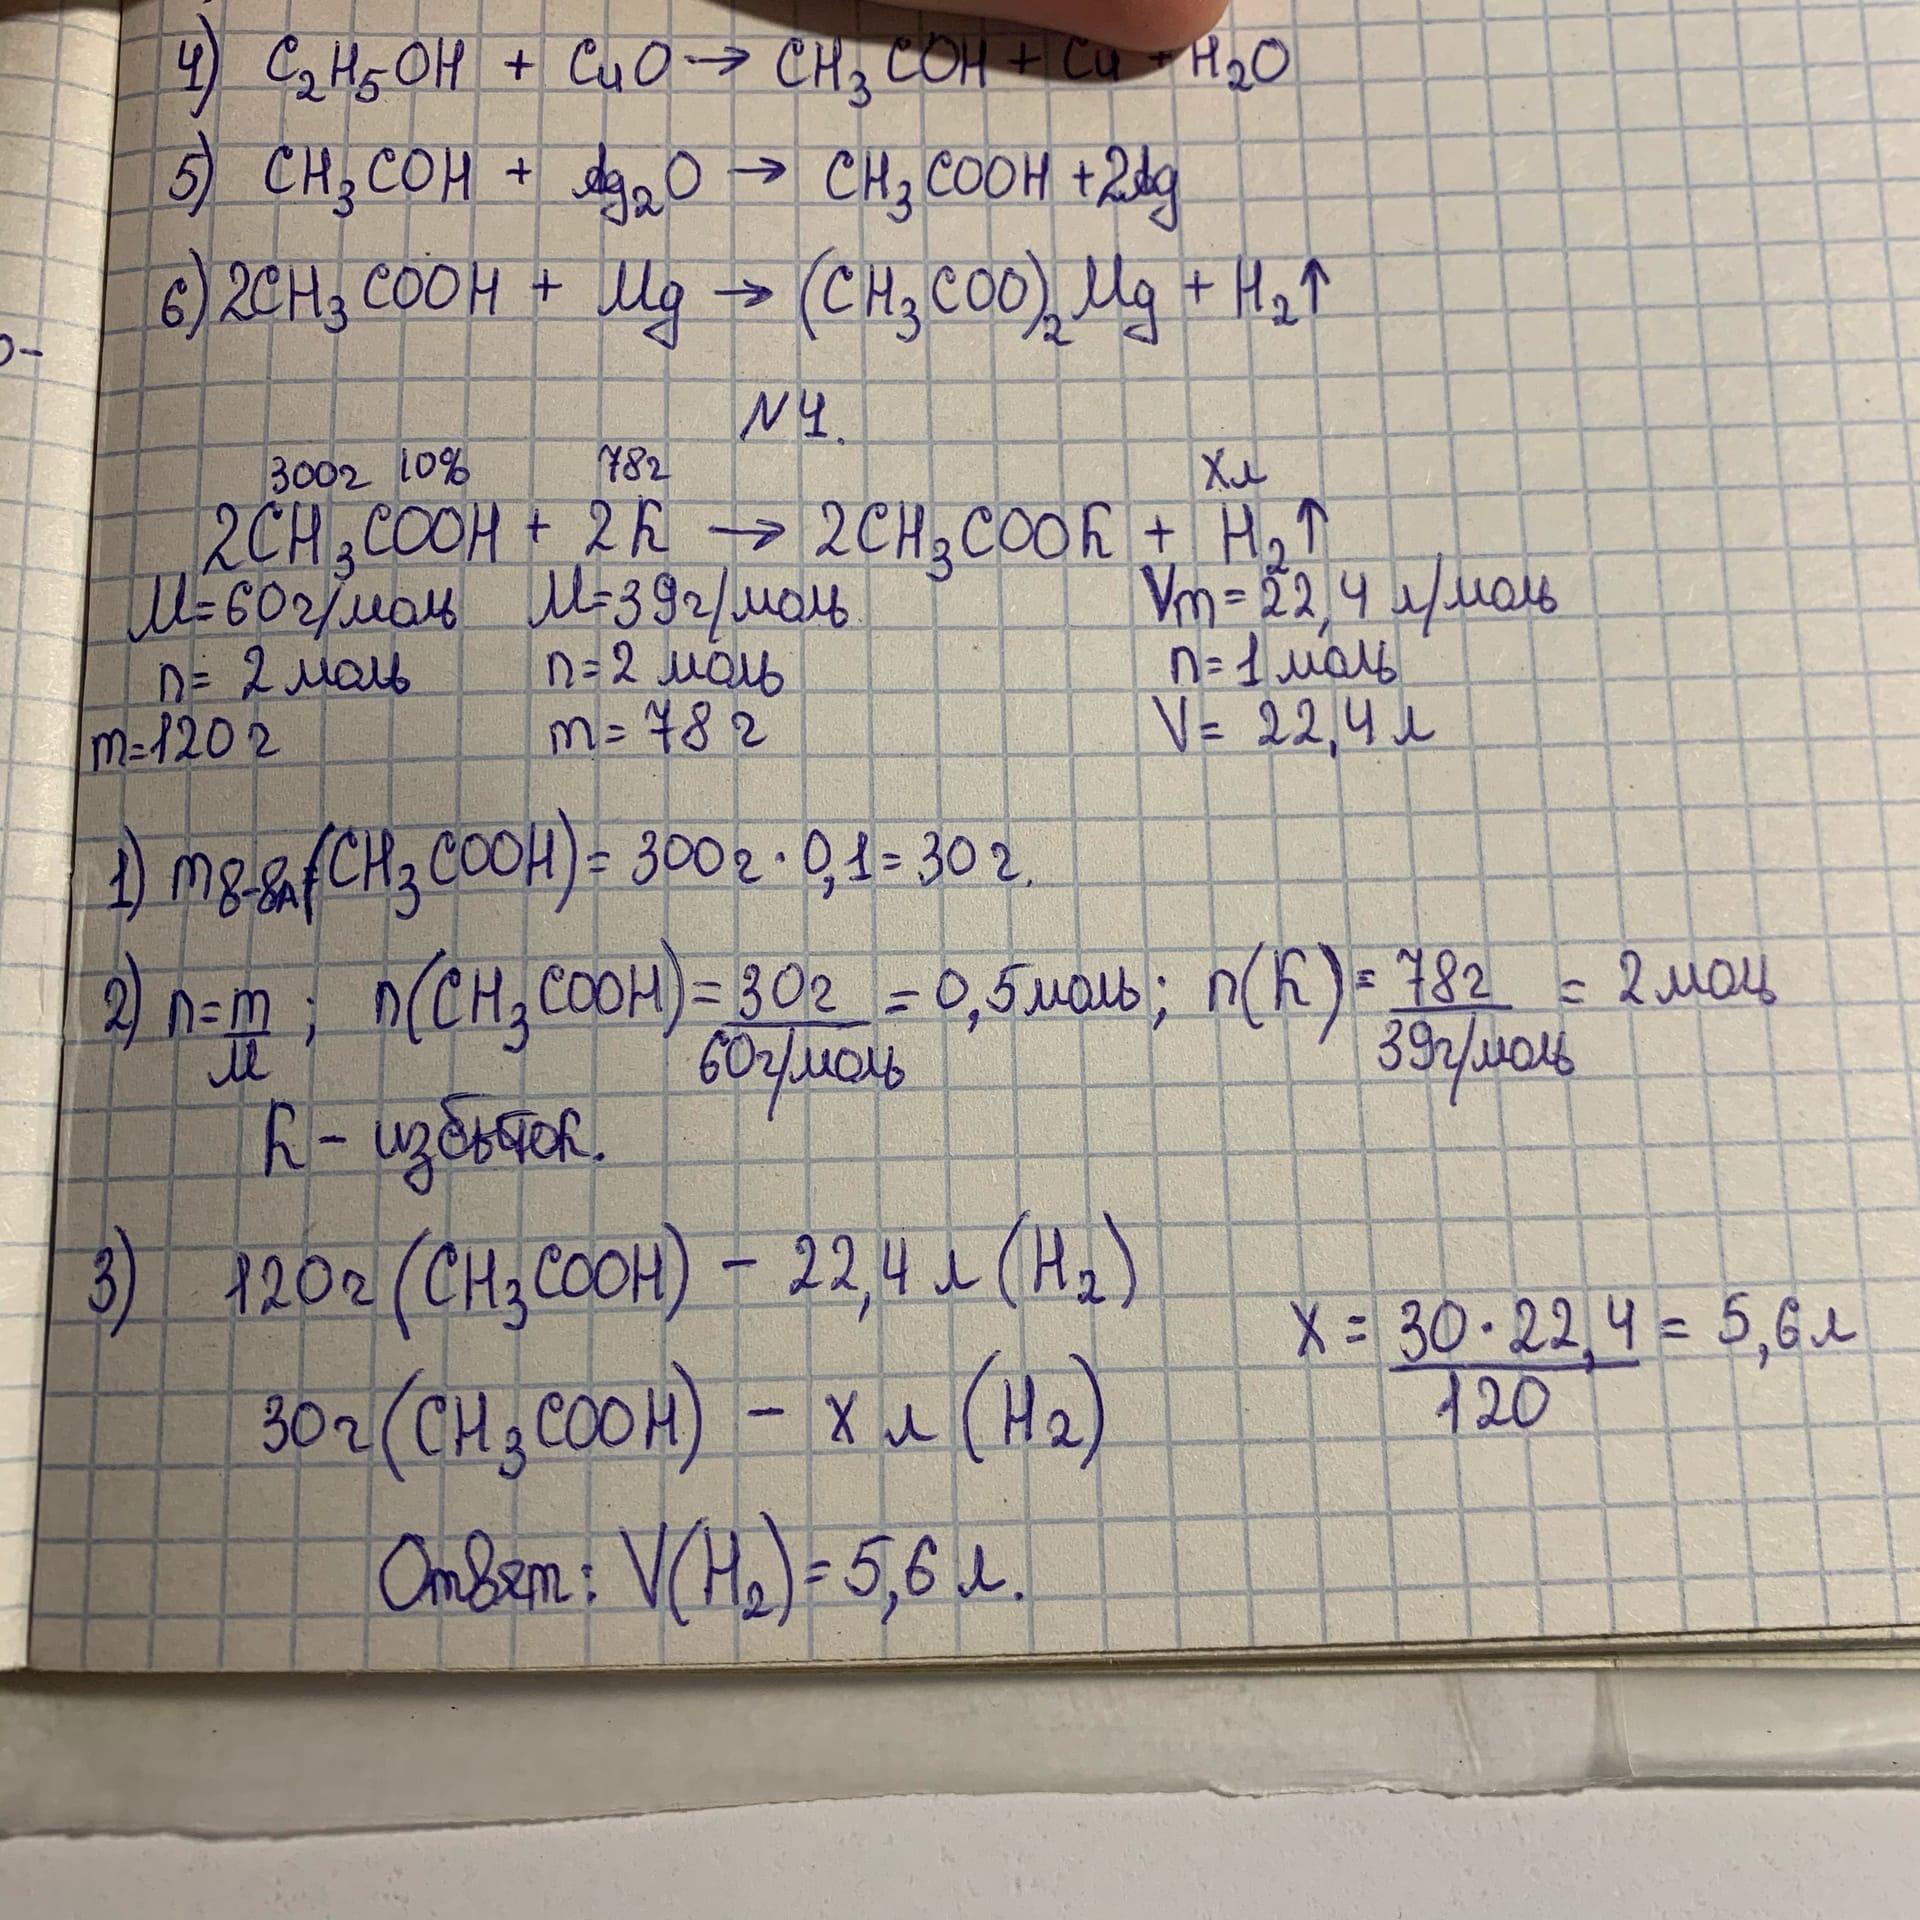 4) C₂H₅OH + CuO → CH₃COH + Cu + H₂O
5) CH₃COH + Ag₂O → CH₃COOH + 2Ag
6) 2CH₃COOH + Mg → (CH₃COO)₂Mg + H₂↑
N4.
300г 10% 78г xл
2CH₃COOH + 2K → 2CH₃COOK + H₂↑
M=60г/моль M=39г/моль Vm=22,4 л/моль
n= 2 моль n=2 моль n=1 моль
m=120 г m= 78 г V= 22,4 л
1) m в-ва (CH₃COOH)= 300г · 0,1= 30 г.
2) n=m/M ; n(CH₃COOH)= 30г/60г/моль = 0,5 моль; n(K)= 78г/39г/моль = 2 моль
K – избыток.
3) 120г (CH₃COOH) – 22,4 л (H₂)
x = 30·22,4/120 = 5,6 л
30г (CH₃COOH) – x л (H₂)
Ответ: V(H₂)= 5,6 л.